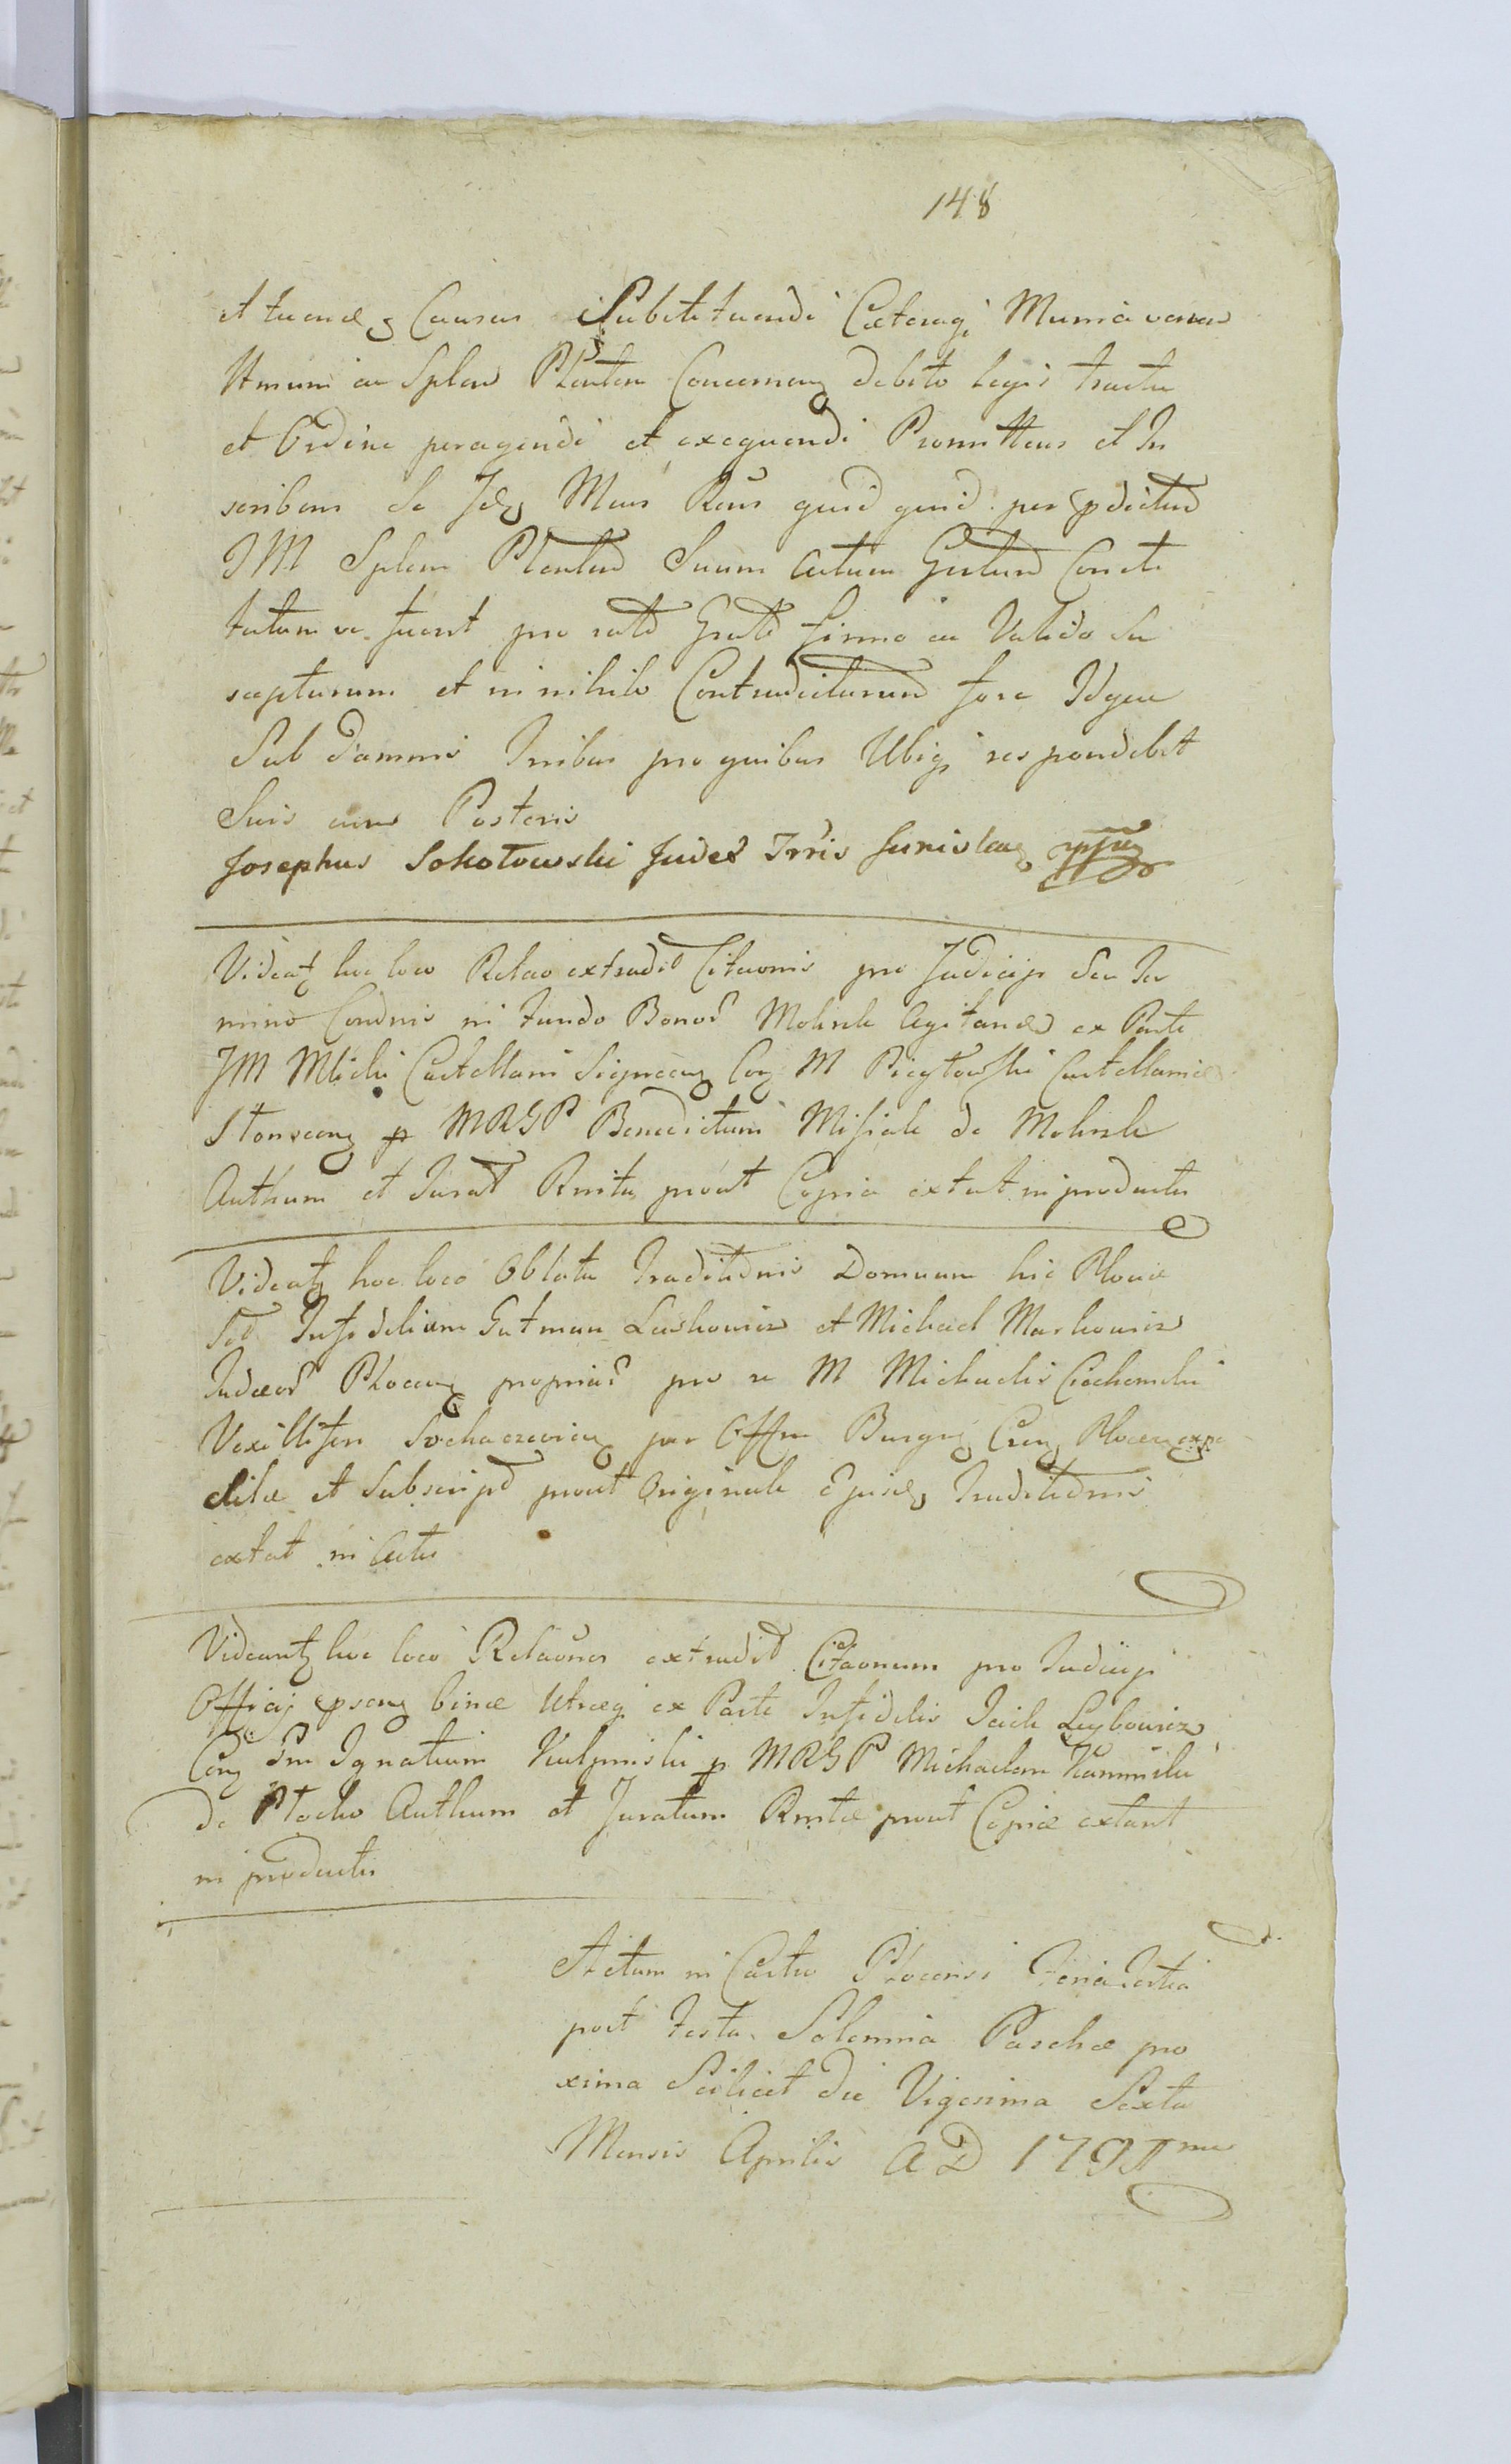 148
et tuendas Causas Substituendi Cæteraq; Munia veram
Umum ac Splem Plentem Concernen debito legis tractu
et Ordine peragendi et exequendi Promittens et In
scribens se Idem Mcus Rens quid quid per epdictum
JM Splem Plentem Suum Actum Gestum Consti
tutum ve fuerit pro rato Grato firmo ac Valido su
scepturum et in nihilo Contradicturum fore Idque
Sub damnis Tribus pro quibus Ubiq; respondebit
Suis cum Posteris
Josephus Sokołowski Judex Trris Juniolaen
Videat hoc loco Relao extradit Citaonis pro Judicijs seu Ter
mino Condnis in fundo Bonor Mokrsk Agitand ex Parte
JM Mlicki Castellani Sierpcen Con M Piętowski Castellanid
Słonscen p MRGP Benedictum Misiak de Mokrsk
Authum et Jurat Rnita prout Copia extat in productis
Videatur hoc loco Oblata Traditionis Domuum hic Plociæ
Infidelium Gutman Laskowicz et Michael Markowicz
Judæor Plocen propriar pro re M Michaelis Ciechomski
Vexilliferi Sochaczevien per Offm Burgg Cren Plocen expe
ditæ et Subscript prout Originale Ejusdem Traditionis
extat in Actis
Videantur hoc loco Relaones extradit Citaonum pro Judicijs
Officij epsens binæ Utræq; ex Parte Infidelis Icik Leybowicz
Con Gm Ignatium Kulpinski p MRGP Michaelem Kaminski
de Płocko Authum et Juratum Rnitæ prout Copiæ extant
in productis
Actum in Castro Plocensi Feria Tertia
post Festa Solemnia Paschæ pro
xima Scilicet die Vigesima Sexta
Mensis Aprilis AD 1791mo